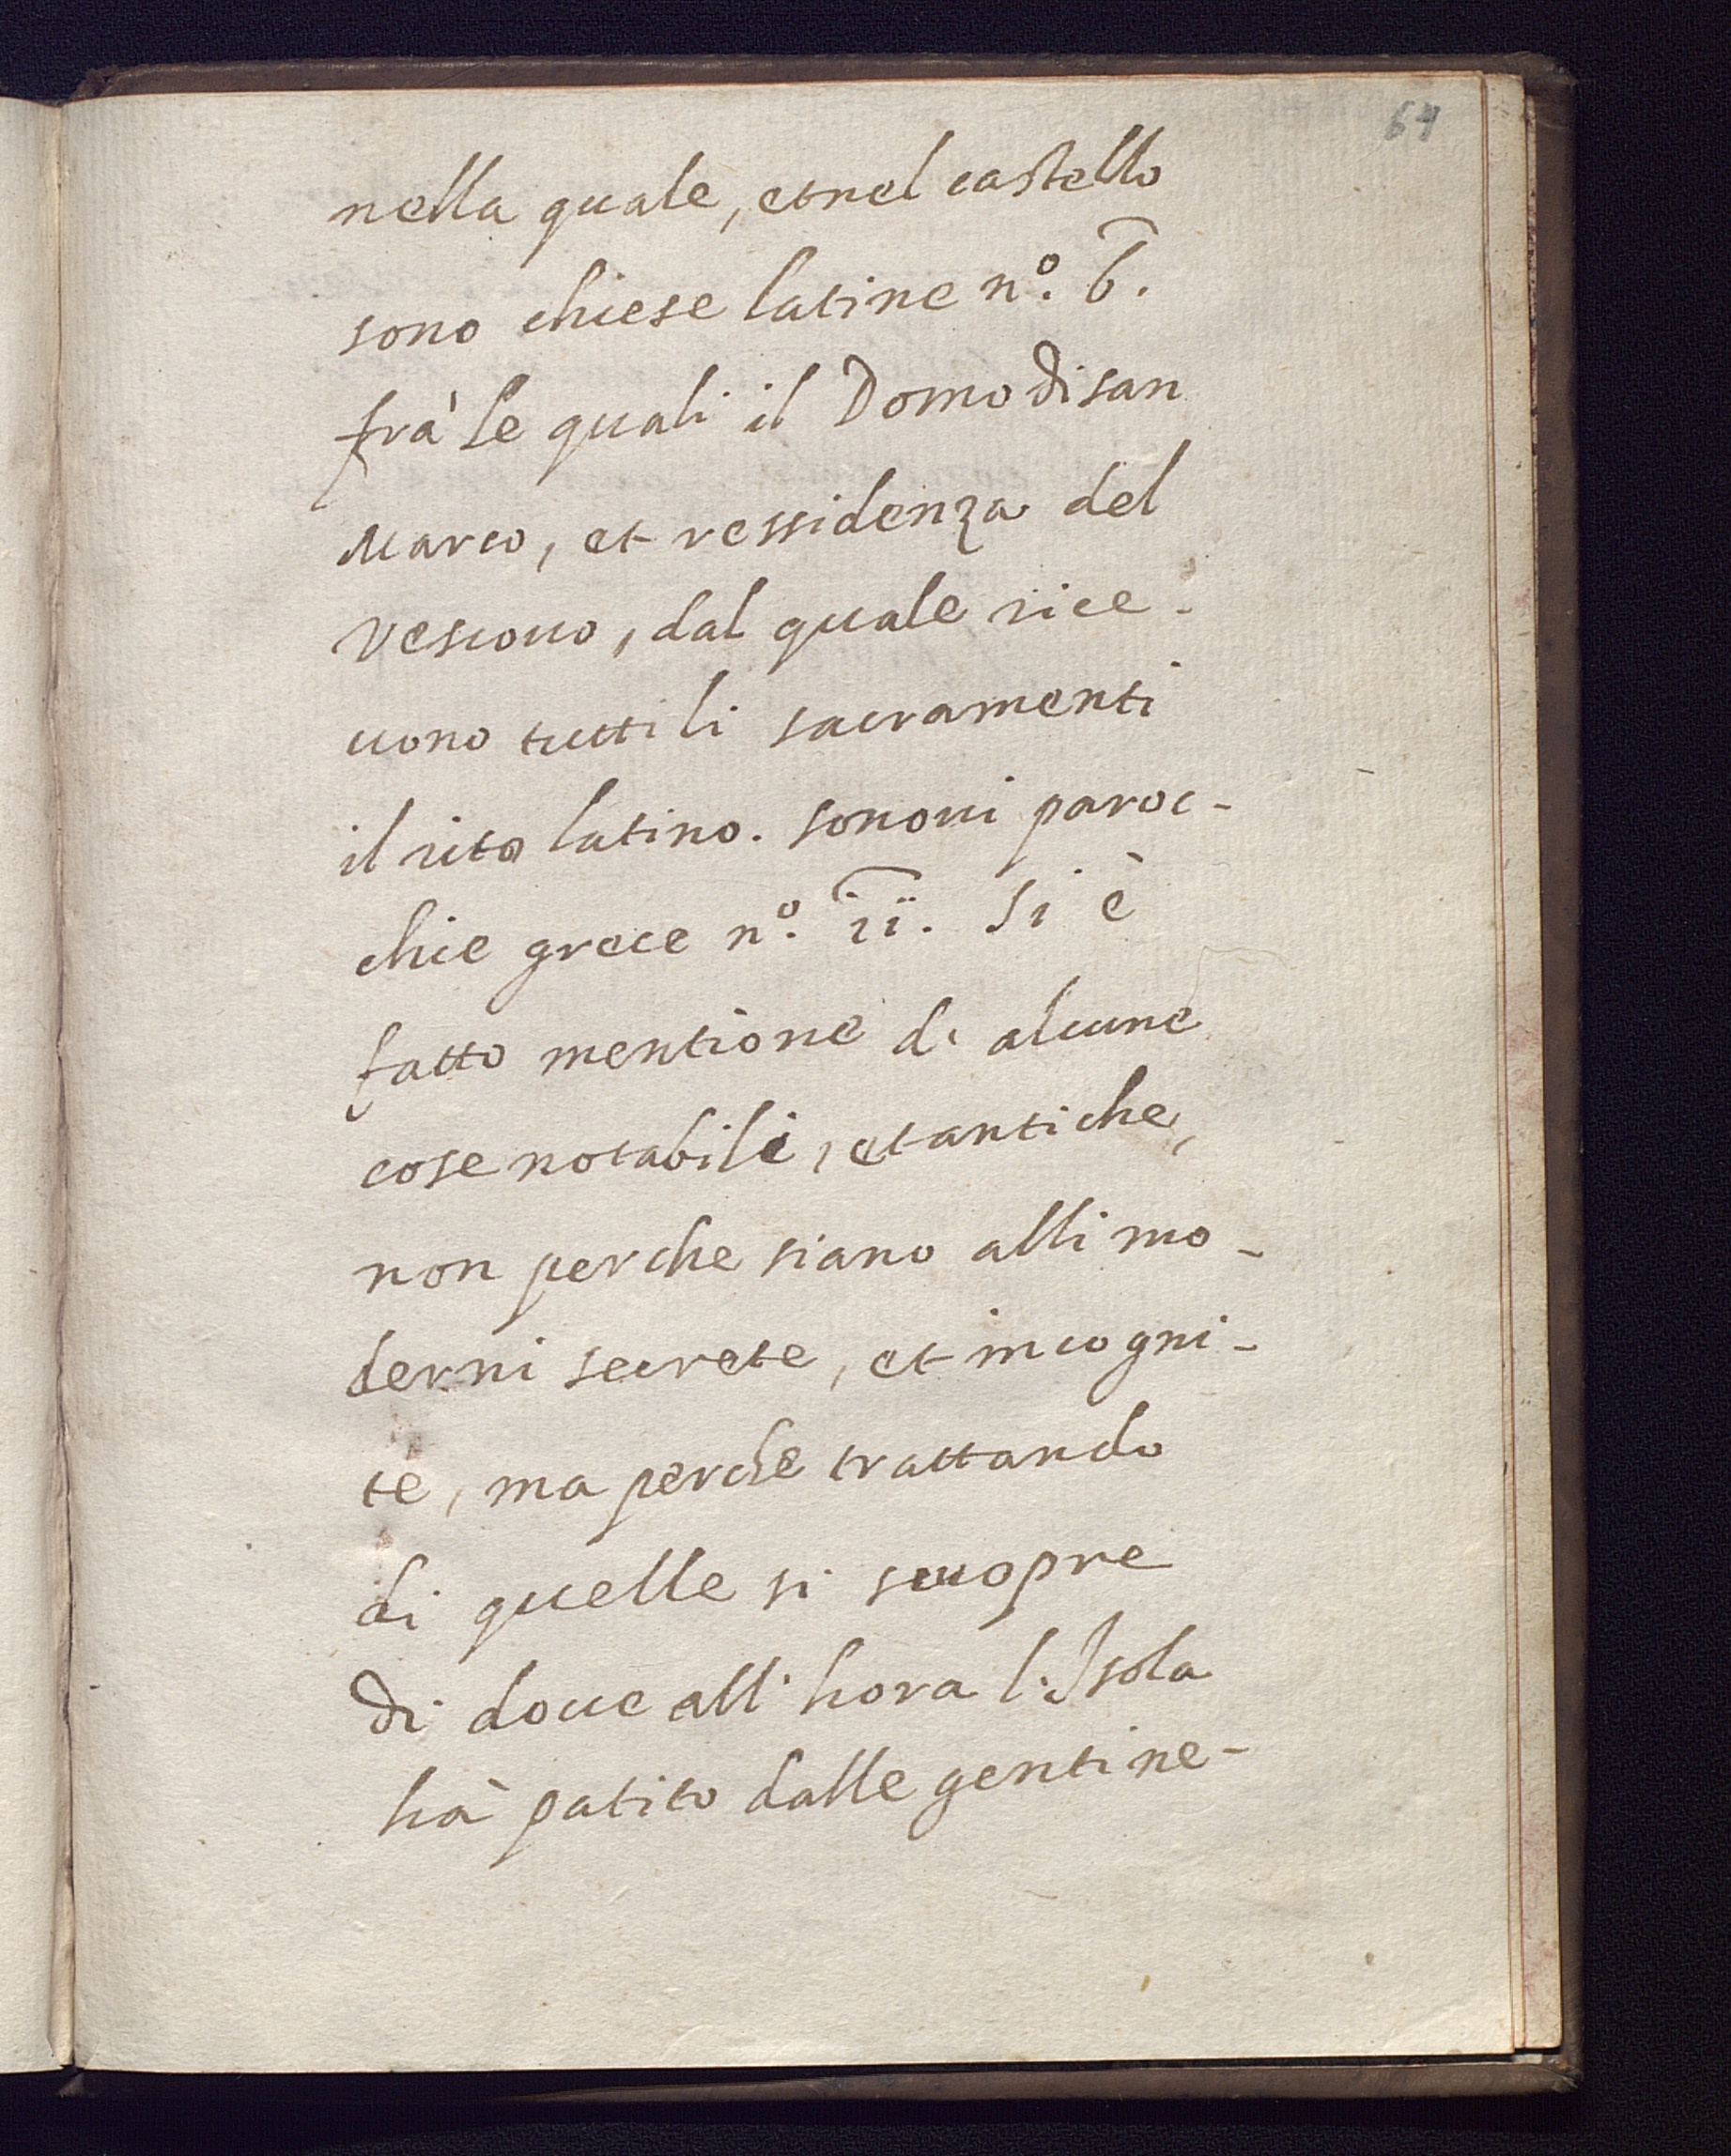 64
nella quale, et nel castello
sono chiese latine nº. 6.
frà le quali il Domo di san
Marco, et ressidenza del
Vescouo, dal quale rice-
uono tutti li sacramenti
il rito latino. sonoui paroc-
chie grece nº. ii. Si è
fatto mentione di alcune
cose notabili, et antiche,
non perche siano alli mo-
derni secrete, et incogni-
te, ma perche trattando
di quelle si scuopre
di doue all' hora l'Isola
hà patito dalle genti ne-